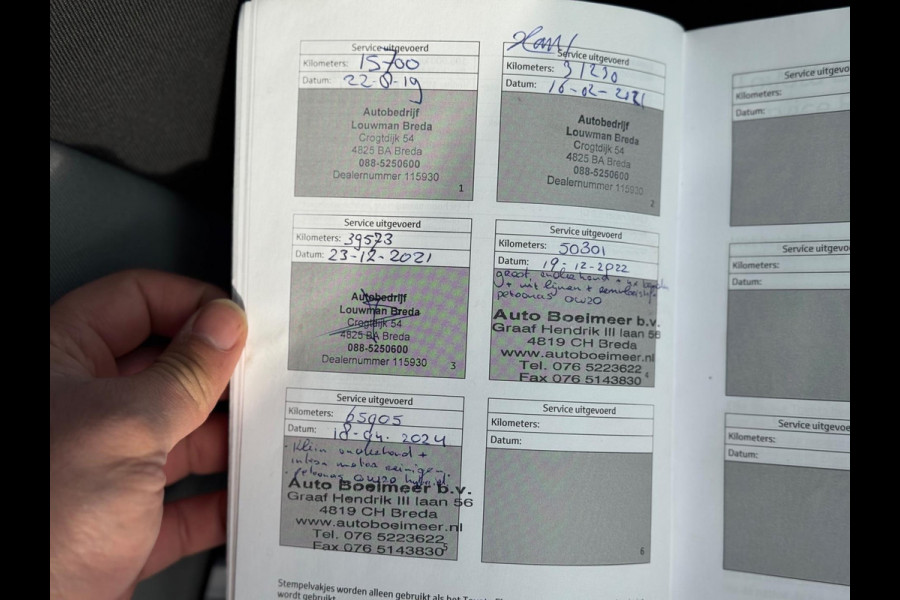 Service uitgevoerd
Kilometers: 15700
Datum: 22-8-19
Autobedrijf
Louwman Breda
Crogtdijk 54
4825 BA Breda
088-5250600
Dealernummer 115930
1
Service uitgevoerd
Kilometers: 31230
Datum: 16-02-2021
Autobedrijf
Louwman Breda
Crogtdijk 54
4825 BA Breda
088-5250600
Dealernummer 115930
2
Service uitgevoerd
Kilometers: 39573
Datum: 23-12-2021
Autobedrijf
Louwman Breda
Crogtdijk 54
4825 BA Breda
088-5250600
Dealernummer 115930
3
Service uitgevoerd
Kilometers: 50301
Datum: 19-12-2022
groot onderhoud +
+ uitlijnen +
petronas 0W20
Auto Boeimeer b.v.
Graaf Hendrik III laan 56
4819 CH Breda
www.autoboeimeer.nl
Tel. 076 5223622
Fax 076 5143830
4
Service uitgevoerd
Kilometers: 65905
Datum: 18-04-2024
- Klein onderhoud +
motor reinigen
- petronas 0W20 hybrid
Auto Boeimeer b.v.
Graaf Hendrik III laan 56
4819 CH Breda
www.autoboeimeer.nl
Tel. 076 5223622
Fax 076 5143830
5
Service uitgevoerd
Kilometers:
Datum:
6
Service uitgevo
Kilometers:
Datum:
Service uitgevo
Kilometers:
Datum:
Service uitgevo
Kilometers:
Datum:
Stempelvakjes worden alleen gebruikt als het
wordt gebruikt.